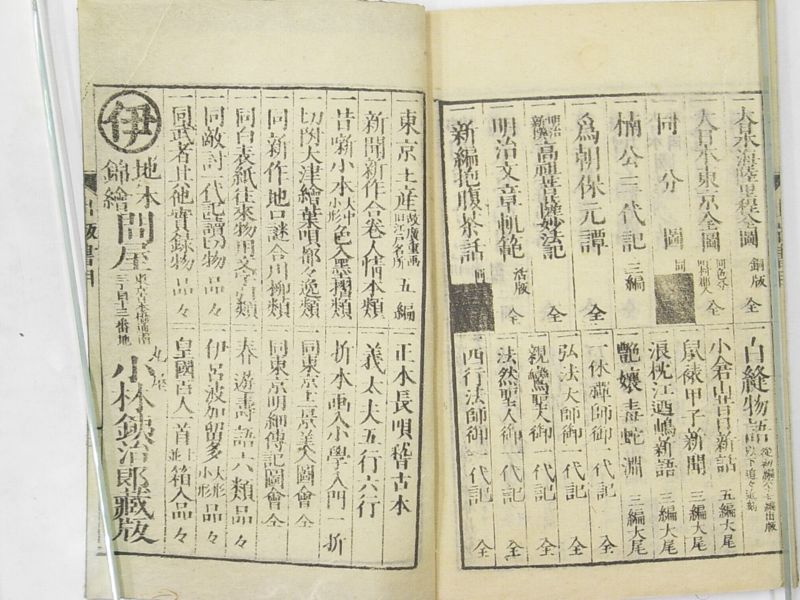 大日本海陸里程全圖 銅版 全
大日本東京全圖 全
同分圖 同
楠公三代記 三編
爲朝保元譚 全
高祖日蓮妙法記 全
明治文章軌範 活版 全
新編抱腹茶話 同
白縫物語
小倉山昔日新話 五編大尾
鼠裱甲子新聞 三編大尾
浪枕江の嶋新語 三編大尾
艶孃毒蛇淵 三編大尾
一休禪師御一代記 全
弘法大師御一代記 全
親鸞聖人御一代記 全
法然聖人御一代記 全
西行法師御一代記 全
東京土産 五編
新聞新作合卷人情本類
昔噺小本 大中小形 色入墨摺類
切附大津繪葉唄都々逸類
同新作地口謎合川柳類
同白表紙往來物用文章類
同敵討一代記讀切物品々
同武者其他實録物品々
正本長唄稽古本
義太夫五行六行
折本畫入小學入門一折
同東京土産美人圖會 全
同東京明細傳記圖會 全
春遊壽語六類品々
伊呂波加留多 大形小形 品々
皇國百人一首 箱入品々
伊
地本
錦繪
問屋
丸屋
小林銕治郎藏版